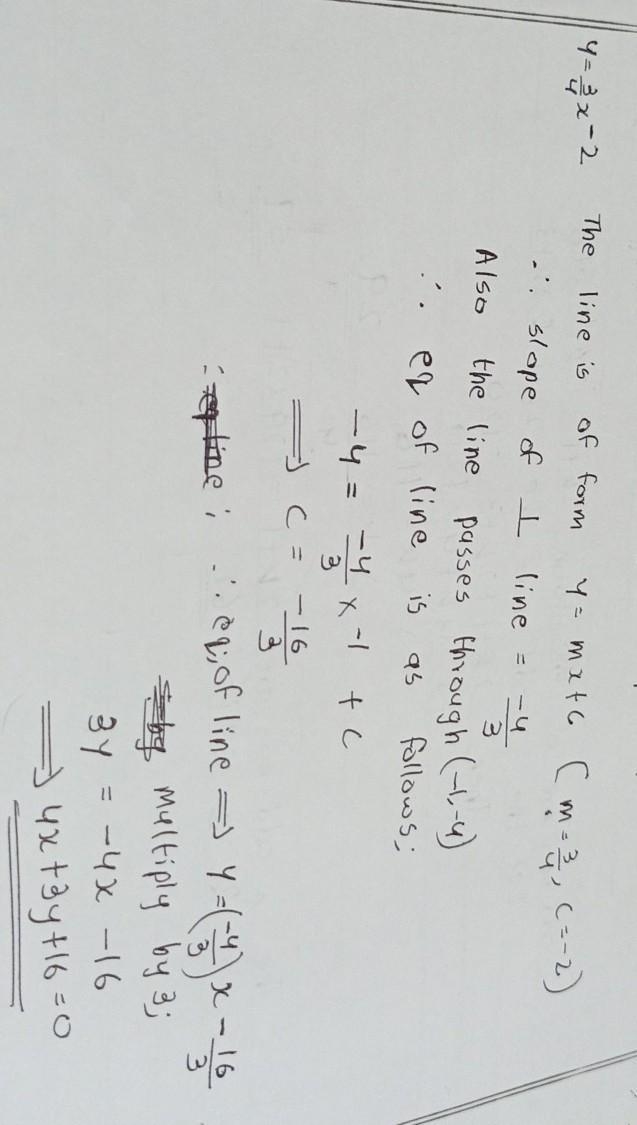 y = 3/4 x - 2 The line is of form y = mx+c (m = 3/4, c = -2)
∴ slope of ⊥ line = -4/3
Also the line passes through (-1,-4)
∴ eq of line is as follows;
-4 = -4/3 x -1 + c
⟹ c = -16/3
: line ; ∴ eq; of line ⟹ y = (-4/3)x - 16/3
multiply by 3;
3y = -4x -16
⟹ 4x+3y+16=0